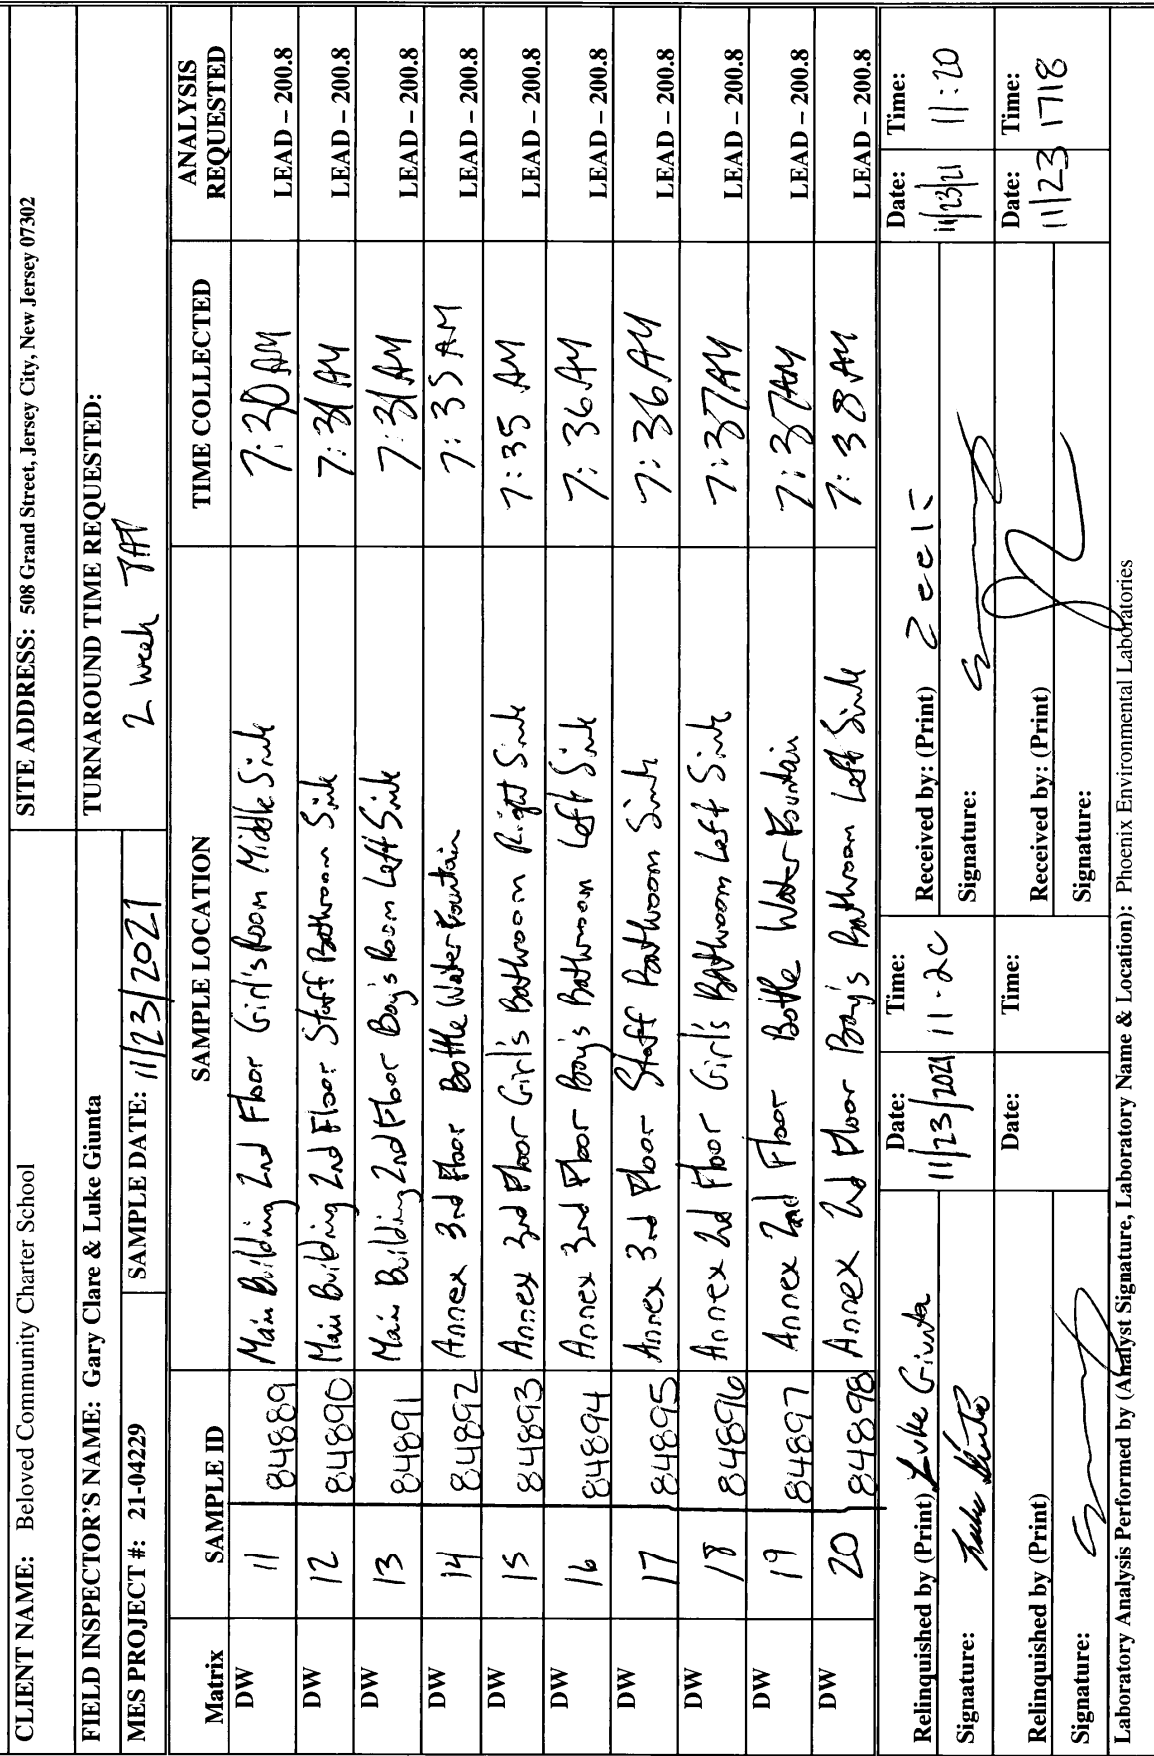 CLIENT NAME: Beloved Community Charter School SITE ADDRESS: 508 Grand Street, Jersey City, New Jersey 07302
FIELD INSPECTOR'S NAME: Gary Clare & Luke Giunta TURNAROUND TIME REQUESTED:
MES PROJECT #: 21-04229 SAMPLE DATE: 11/23/2021 2 week TAT
Matrix SAMPLE ID SAMPLE LOCATION TIME COLLECTED ANALYSIS REQUESTED
DW 11 84889 Main Building 2nd Floor Girl's Room Middle Sink 7:30 AM LEAD – 200.8
DW 12 84890 Main Building 2nd Floor Staff Bathroom Sink 7:31 AM LEAD – 200.8
DW 13 84891 Main Building 2nd Floor Boy's Room Left Sink 7:31 AM LEAD – 200.8
DW 14 84892 Annex 3rd Floor Bottle Water Fountain 7:35 AM LEAD – 200.8
DW 15 84893 Annex 3rd Floor Girl's Bathroom Right Sink 7:35 AM LEAD – 200.8
DW 16 84894 Annex 3rd Floor Boy's Bathroom Left Sink 7:36 AM LEAD – 200.8
DW 17 84895 Annex 3rd Floor Staff Bathroom Sink 7:36 AM LEAD – 200.8
DW 18 84896 Annex 2nd Floor Girl's Bathroom Left Sink 7:37 AM LEAD – 200.8
DW 19 84897 Annex 2nd Floor Bottle Water Fountain 7:37 AM LEAD – 200.8
DW 20 84898 Annex 2nd Floor Boy's Bathroom Left Sink 7:38 AM LEAD – 200.8
Relinquished by (Print) Luke Giunta Date: 11/23/2021 Time: 11-20 Received by: (Print) Date: 11/23/21 Time: 11:20
Signature: Luke Giunta Signature:
Relinquished by (Print) Date: Time: Received by: (Print) Date: 11/23 Time: 1718
Signature: Signature:
Laboratory Analysis Performed by (Analyst Signature, Laboratory Name & Location): Phoenix Environmental Laboratories